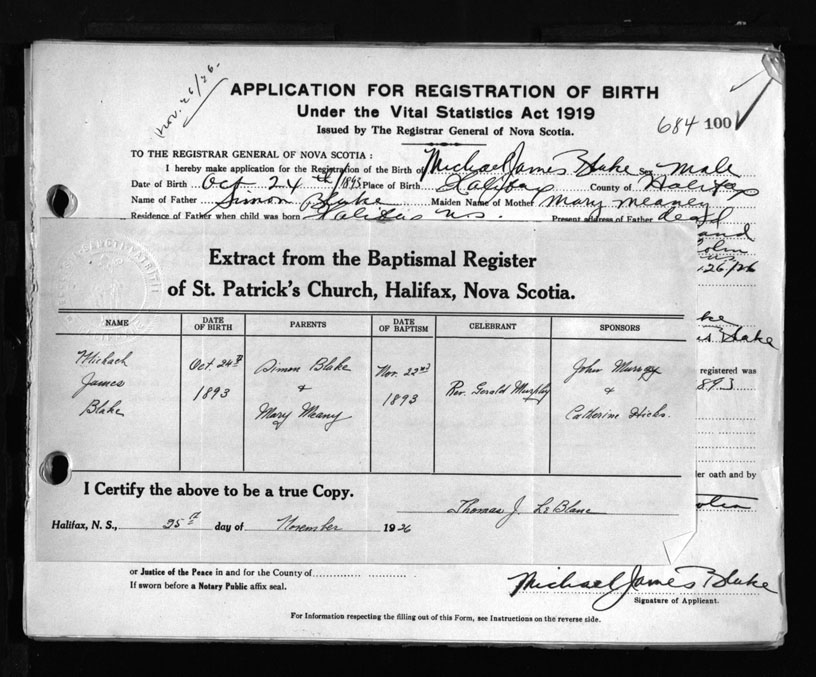 Nov. 26/26.
APPLICATION FOR REGISTRATION OF BIRTH
Under the Vital Statistics Act 1919
Issued by The Registrar General of Nova Scotia.
684 100
TO THE REGISTRAR GENERAL OF NOVA SCOTIA :
I hereby make application for the Registration of the Birth of Michael James Blake Sex Male
Date of Birth Oct. 24th/1893 Place of Birth Halifax County of Halifax
Name of Father Simon Blake Maiden Name of Mother Mary Meaney
Residence of Father when child was born Halifax N.S. Present address of Father dead
and
26/26
Extract from the Baptismal Register
of St. Patrick's Church, Halifax, Nova Scotia.
NAME DATE OF BIRTH PARENTS DATE OF BAPTISM CELEBRANT SPONSORS
Michael James Blake Oct. 24th 1893 Simon Blake & Mary Meany Nov. 22nd 1893 Rev. Gerald Murphy John Murray & Catherine Hicks.
Blake
registered was
893
er oath and by
I Certify the above to be a true Copy.
Thomas J. LeBlanc
Halifax, N. S., 25th day of November 1926
or Justice of the Peace in and for the County of
If sworn before a Notary Public affix seal.
Michael James Blake
Signature of Applicant.
For Information respecting the filling out of this Form, see Instructions on the reverse side.